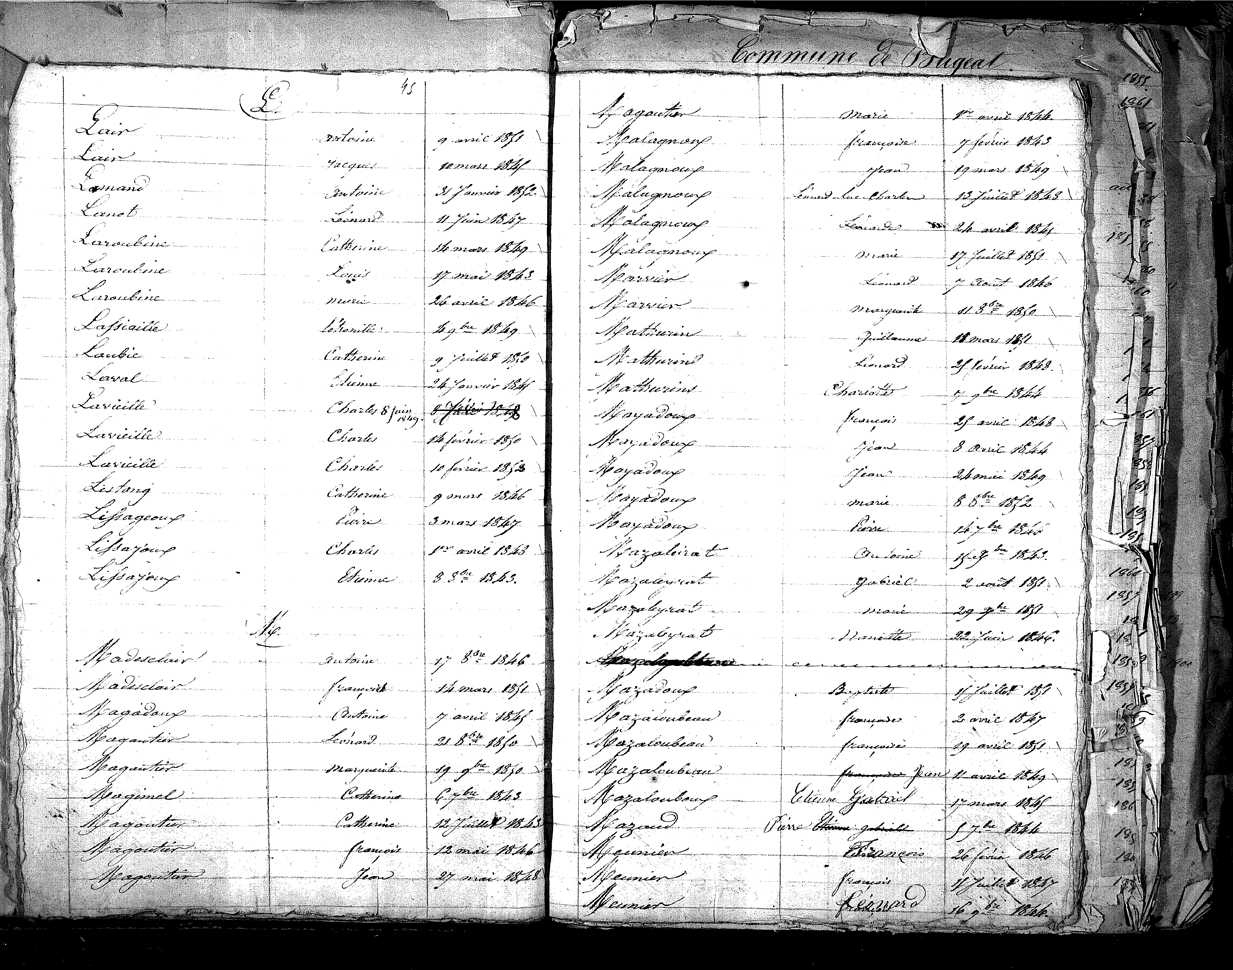 45
L
Lair antoine 9 avril 1851
Lair Jacques 11 mars 1845
Lamand antoine 31 Janvier 1852
Lanot Léonard 11 Juin 1847
Laroubine Catherine 14 mars 1849
Laroubine Louis 17 mai 1843
Laroubine marie 26 avril 1846
Lassiaille 4 9bre 1849
Laubie Catherine 9 Juillet 1850
Laval Etienne 24 Janvier 1845
Lavieille Charles 8 Juin 1849
Lavieille Charles 14 février 1850
Lavieille Charles 10 février 1853
Lestang Catherine 9 mars 1846
Lissageoux Pierre 3 mars 1847
Lissajoux Charles 1er avril 1843
Lissajoux Etienne 8 8bre 1843.
M.
Madesclair antoine 17 8bre 1846
Madesclair françois 14 mars 1851
Magadoux Antoine 7 avril 1845
Magoutier Léonard 21 8bre 1850
Magoutier Marguerite 19 9bre 1850
Magimel Catherine 6 7bre 1843
Magoutier Catherine 12 Juillet 1843
Magoutier françois 12 mai 1846
Magoutier Jean 27 mai 1848
Commune de Bugeat
Magoutier marie 1er avril 1844
Malagnoux françoise 7 février 1843
Malagnoux Jean 19 mars 1849
Malagnoux Léonard Luc Charles 13 Juillet 1843
Malagnoux Léonarde 24 avril 1845
Malagnoux marie 17 Juillet 1851
Marvier Léonard 7 août 1846
Marvier marguerite 11 8bre 1850
Mathurin Guillaume 18 mars 1851
Mathurins Léonard 25 février 1848
Mathurins Charlotte 7 9bre 1844
Mayadoux françois 25 avril 1848
Mayadoux Jean 8 avril 1844
Mayadoux Jean 24 mai 1849
Mayadoux marie 8 8bre 1852
Mayadoux Pierre 14 7bre 1846
Mazaleirat Antoine 15 9bre 1843
Mazaleyrat gabriel 2 août 1851
Mazaleyrat marie 29 9bre 1851
Mazaleyrat Nanette 22 Juin 1846.
Mazadoux Baptiste 15 Juillet 1851
Mazaloubeau françoise 2 avril 1847
Mazaloubeau françoise 29 avril 1851
Mazaloubeau Jean 11 avril 1849
Mazalouboux Etienne Gabriel 17 mars 1845
Mazaud Pierre 5 7bre 1844
Meunier François 26 février 1846
Meunier françois 15 Juillet 1847
Meunier Léonard 16 9bre 1844